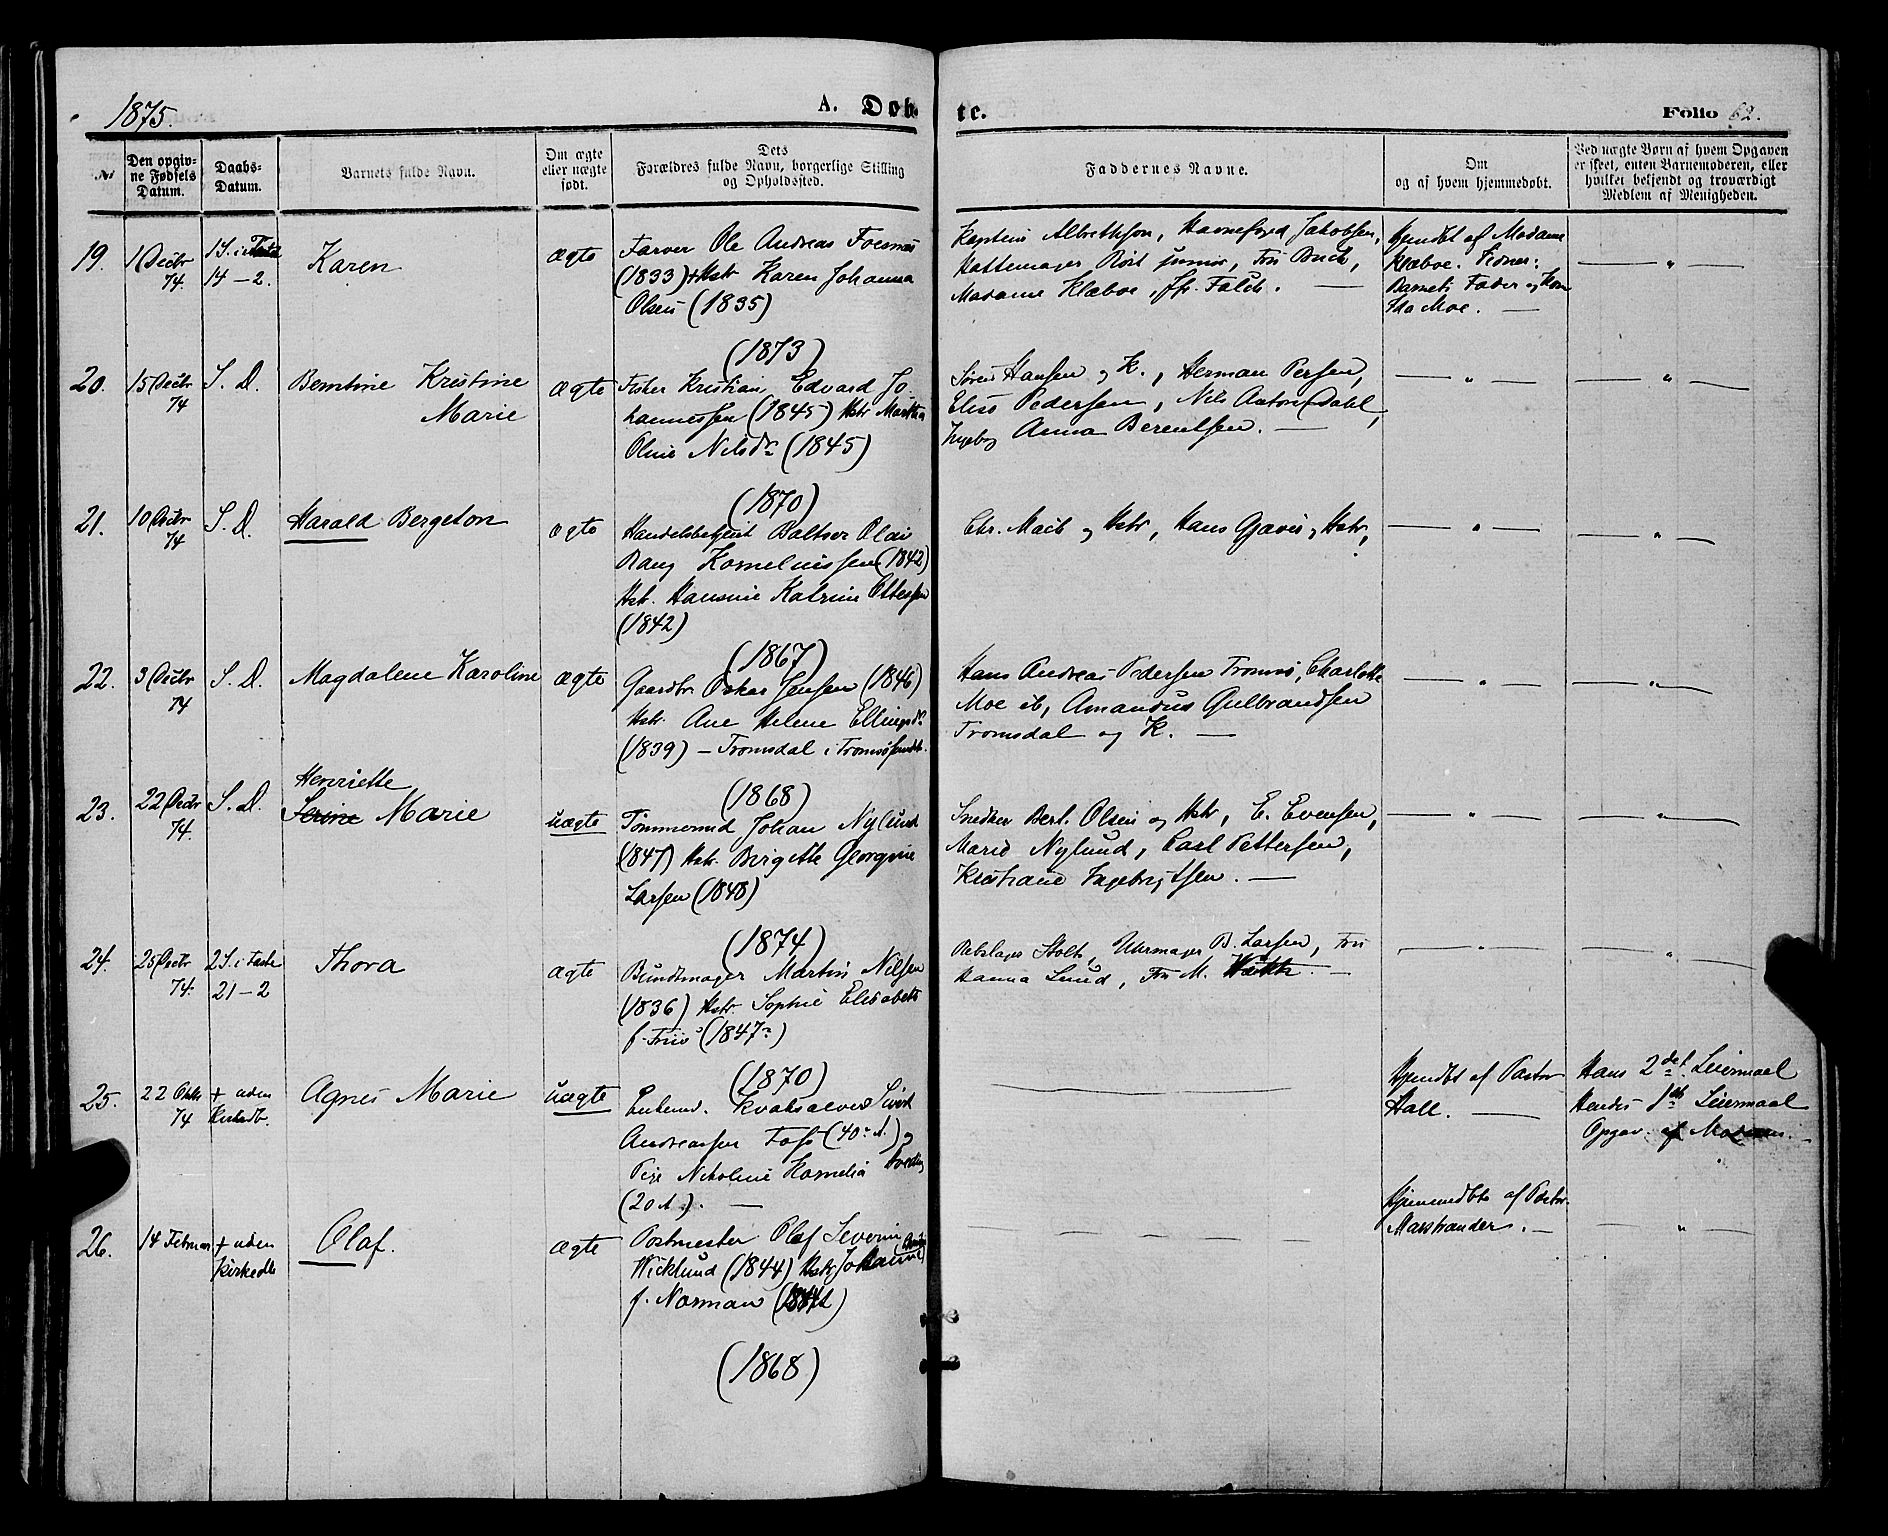 1875.
A. Døb-
te.
Folio 62.
No
Den opgiv-
ne Fødsels
Datum.
Daabs-
Datum.
Barnets fulde Navn.
Om ægte
eller uægte
født.
Dets
Forældres fulde Navn, borgerlige Stilling
og Opholdssted.
Faddernes Navne.
Om
og af hvem hjemmedøbt.
Ved uægte Børn af hvem Opgaven
er skeet, enten Barnemoderen, eller
hvilket bekjendt og troværdigt
Medlem af Menigheden.
19.
1 Decbr
74.
1 S. i Faste
14 – 2.
Karen
ægte
Farver Ole Andreas Foesnæs
(1833) + Hstr Karen Johanna
Olsen (1835)
(1873)
Kaptein Albrethson, Havnefoged Jakobsen,
Hattemager Röst junior, Fru Buck,
Madame Klæboe, Jfr. Falck. —
Hjemdbt af Madame
Klæboe. Vidner:
Barnets Fader og Kone
Ida Moe. —
— " —
20.
15 Decbr
74
S. D.
Berntine Kristine
Marie
ægte
Fisker Kristian Edvard Jo-
hannessen (1845) Hstr Martha
Oline Nilsdr (1845)
(1870)
Søren Hansen og K., Herman Persen,
Elise Pedersen, Nils Anton Dahl,
Ingebog Anna Berentsen. —
— " —
— " —
21.
10 Decbr
74
S. D.
Harald Bergeton
ægte
Handelsbetjent Baltser Olai
Rang Korneliussen (1842)
Hstr. Hansine Katrine Ottesen
(1842)
(1867)
Chr. Mack og Hstr, Hans Gjæver og Hstr,
— " —
— " —
22.
3 Decbr
74
S. D.
Magdalene Karoline
ægte
Gaardbr. Oskar Jensen (1846)
Hstr. Ane Helene Ellingsdr
(1839) – Tromsdal i Tromsøsundet.
(1868)
Hans Andreas Pedersen Tromsø, Charlotte
Moe ib, Amandus Gulbrandsen
Tromsdal og K. —
— " —
— " —
23.
22 Decbr
74.
S. D.
Henriette
Serine Marie
uægte
Tömmermd Johan Nylund
(1847) Hstr. Birgitte Georgine
Larsen (1848)
(1874)
Snedker Bert. Olsen og Hstr, E. Evensen,
Marie Nylund, Carl Pettersen,
Kristiane Ingebrigtsen. —
— " —
— " —
24.
25 Decbr
74.
2 S. i Faste
21 – 2
Thora
ægte
Bundtmager Martin Nilsen
(1836) Hstr. Sophie Elisabeth
f. Friis (1847)
(1870)
Rebslager Stolt, Uhrmager B. Larsen, Fru
Hanna Lund, Fru M. —
— " —
— " —
25.
22 Oktbr
74
+ uden
Kirkedb.
Agnes Marie
uægte
Enkemd. Kvaksalver Sivert
Andreassen Foss (40 A.) og
Pige Nikoline Kornelia
(20 A.). —
Hjemdbt af Pastor
Hall. —
Hans 2det Leiermaal
Hendes 1ste Leiermaal
Opgav. af Moderen. —
26.
14 Februar
+ uden
Kirkedb
Olaf.
ægte
Postmester Olaf Severin
Wicklund (1844) Hstr Johanne
f. Norman
(1868)
Hjemmedbt af Pastor
Marstrander. —
— " —